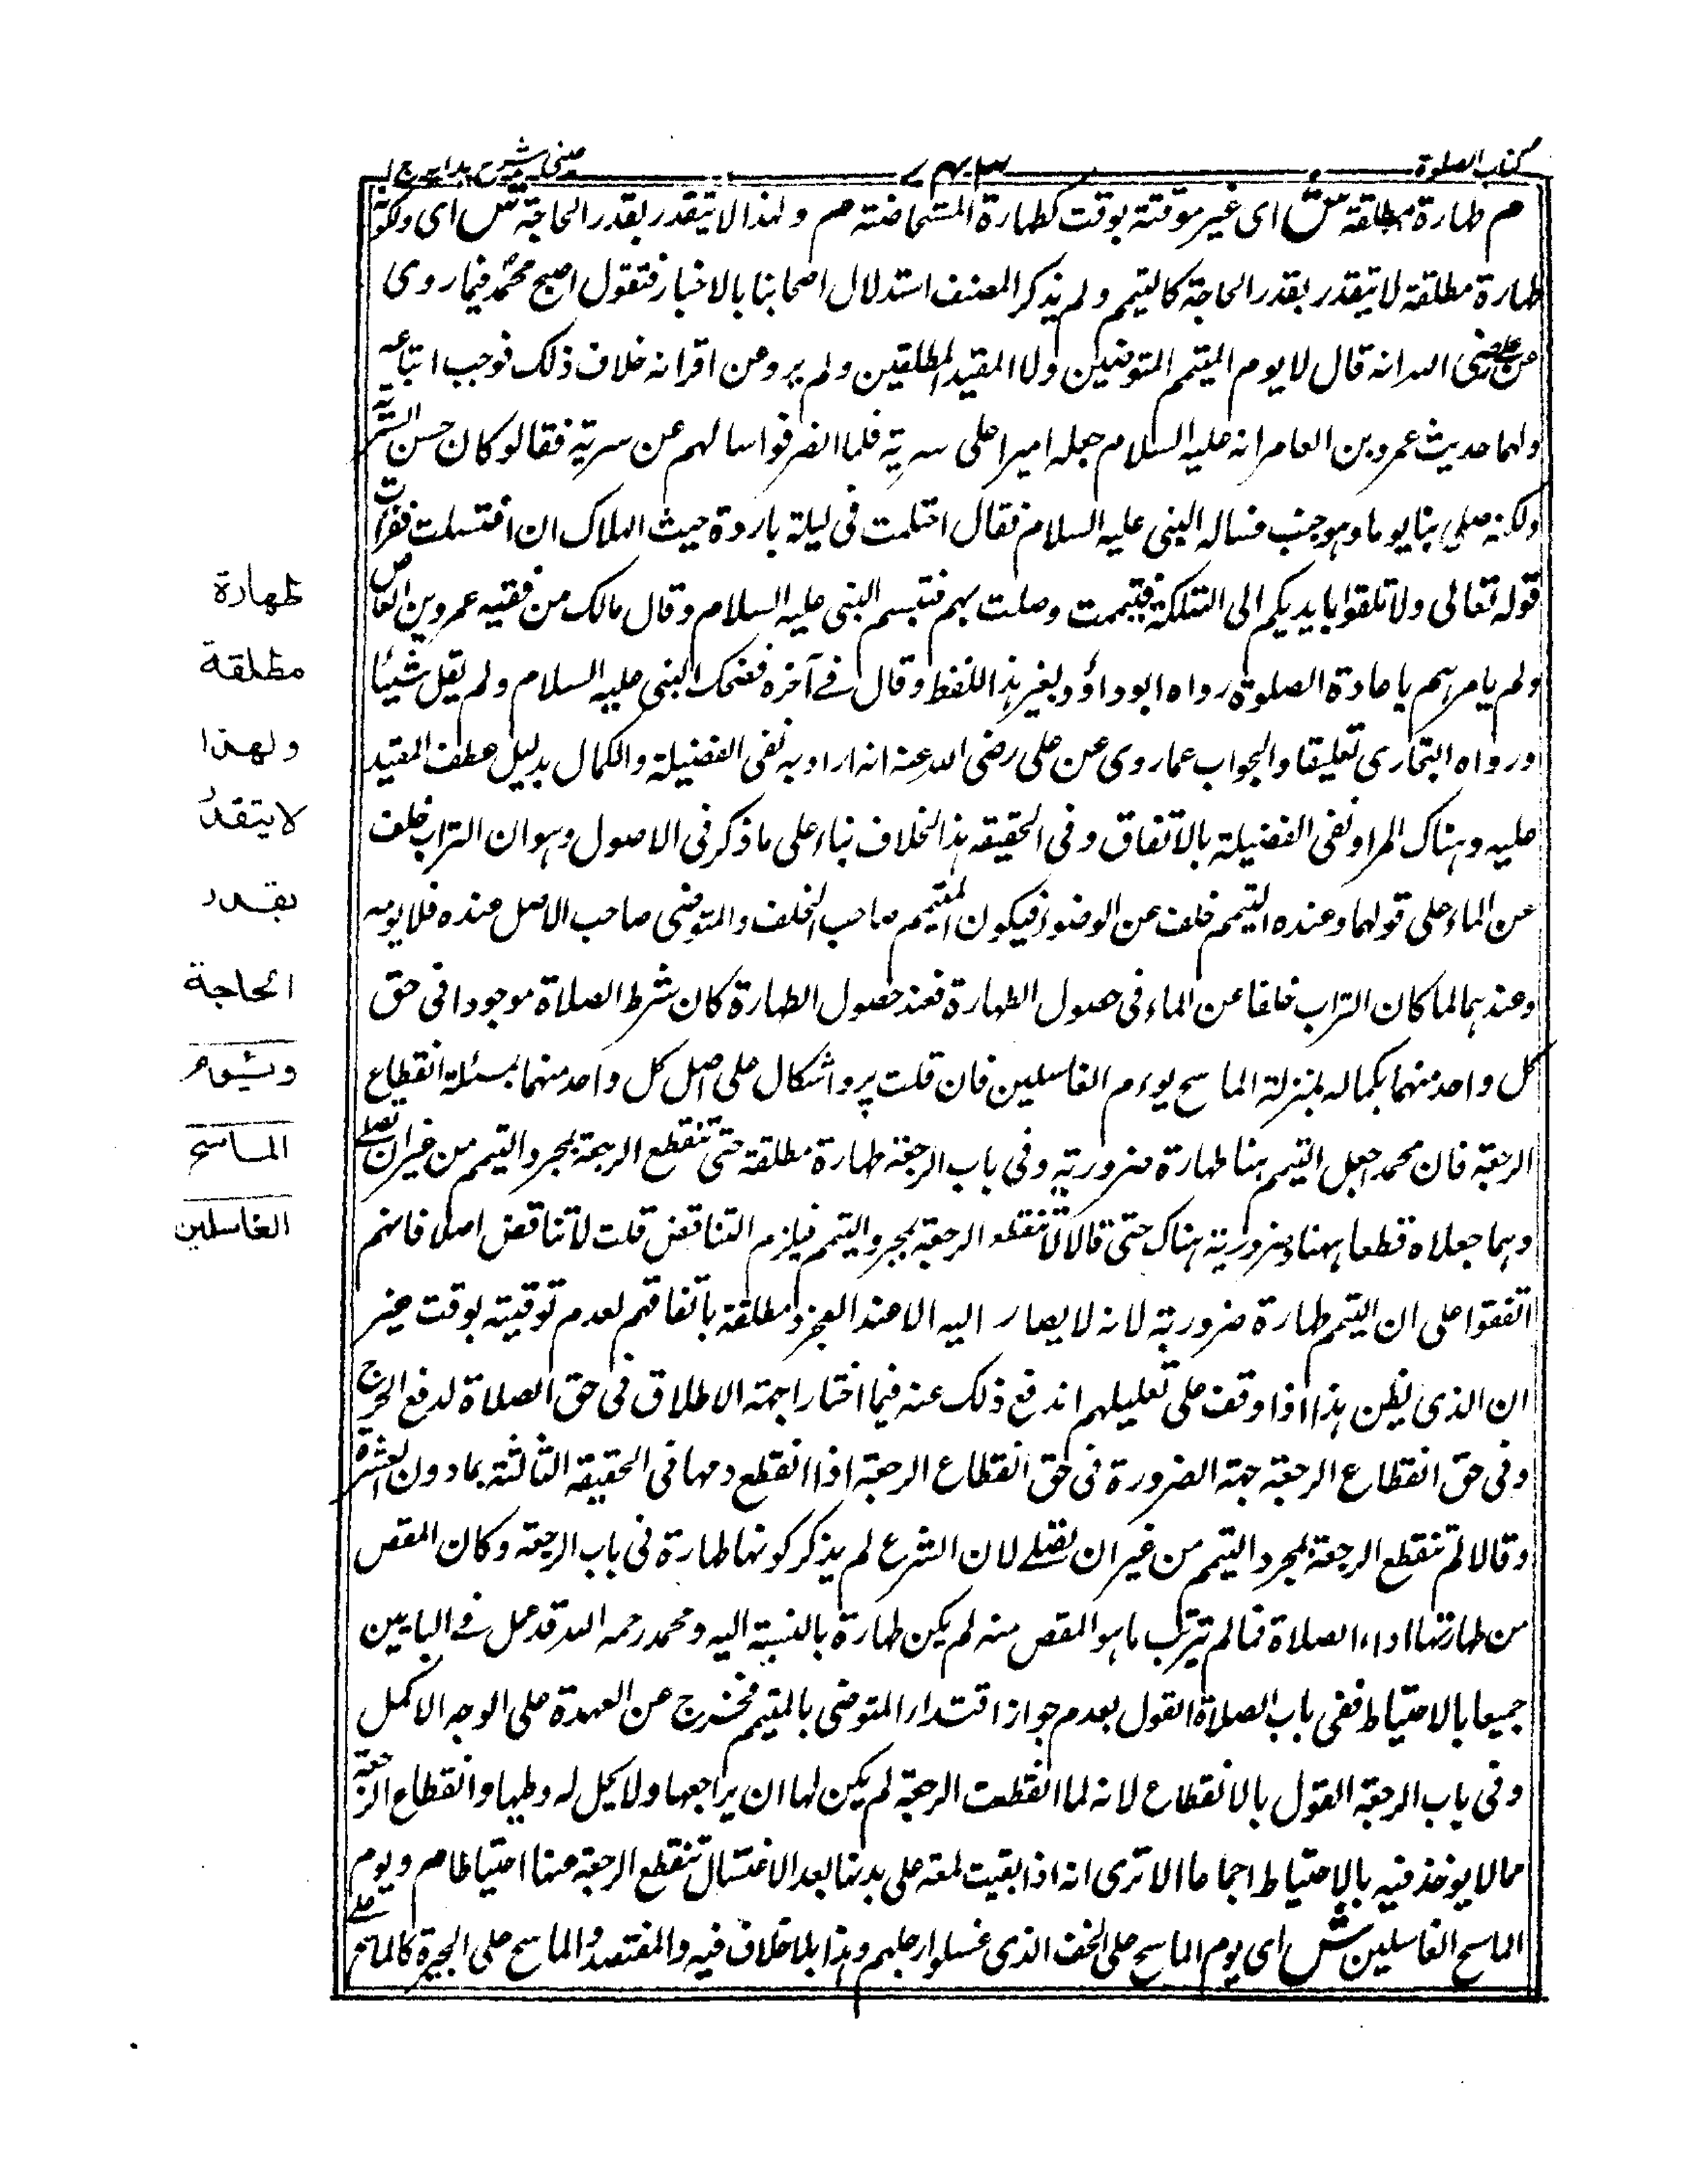 كتاب الصلوة
٧٤٣
عينى شرح هدايه ج ا
م طهارة مطلقة ش اى غير موقتة بوقت كطهارة المستحاضة م ولهذا لا يتقدر بقدر الحاجة ش اى ولكونه
طهارة مطلقة لا يتقدر بقدر الحاجة كالتيمم ولم يذكر المصنف استدلال اصحابنا بالاخبار فنقول احتج محمد فيما روى
عن على رضى الله انه قال لا يوم المتيمم المتوضئين ولا المقيد المطلقين ولم يرو عن اقرانه خلاف ذلك فوجب اتباعه
ولهما حديث عمرو بن العاص انه عليه السلام جعله اميرا على سرية فلما انصرفوا سالهم عن سريته فقالو كان حسن السيرة
ولكنه صلى بنا يوما وهو جنب فساله النبى عليه السلام فقال احتلمت فى ليلة باردة حيث الهلاك ان اغتسلت فقرأت
قوله تعالى ولا تلقوا بايديكم الى التهلكة فتيممت وصلت بهم فتبسم النبى عليه السلام وقال مالك من فقيه عمرو بن العاص
ولم يامرهم باعادة الصلوة رواه ابو داؤد بغير هذا اللفظ وقال فى آخره فضحك النبى عليه السلام ولم يقل شيئا
ورواه البخارى تعليقا والجواب عما روى عن على رضى الله عنه انه اراد به نفى الفضيلة والكمال بدليل عطف المقيد
عليه وهناك المراد نفى الفضيلة بالاتفاق وفى الحقيقه هذا الخلاف بناء على ما ذكر فى الاصول وهو ان التراب خلف
عن الماء على قولهما وعنده التيمم خلف عن الوضوء فيكون المتيمم صاحب الخلف والمتوضى صاحب الاصل عنده فلا يومه
وعندهما لما كان التراب خلفا عن الماء فى حصول الطهارة فعند حصول الطهارة كان شرط الصلاة موجودا فى حق
كل واحد منهما بكماله بمنزلة الماسح يوءم الغاسلين فان قلت يرد اشكال على اصل كل واحد منهما بمسئلة انقطاع
الرجعة فان محمد اجعل التيمم هنا طهارة ضرورية وفى باب الرجعة طهارة مطلقة حتى تنقطع الرجعة بمجرد التيمم من غير ان تصلى
وهما جعلاه قطعا ههنا وضرورية هناك حتى قالا لا تنقطع الرجعة بمجرد التيمم فيلزم التناقض قلت لا تناقض اصلا فانهم
اتفقوا على ان التيمم طهارة ضرورية لانه لا يصار اليه الا عند العجز ومطلقة باتفاقهم لعدم توقيته بوقت غير
ان الذى يظن هذا اذا وقف على تعليلهم اندفع ذلك عنه فيما اختارا جهة الاطلاق فى حق الصلاة لدفع الحرج
وفى حق انقطاع الرجعة جهة الضرورة فى حق انقطاع الرجعة اذا انقطع دمها فى الحقيقه الثالثة بما دون العشرة
وقالا لم تنقطع الرجعة بمجرد التيمم من غير ان تصلى لان الشرع لم يذكر كونها طهارة فى باب الرجعة وكان المقص
من طهارتها اداء الصلاة فما لم يترتب ما هو المقص منه لم يكن طهارة بالنسبة اليه ومحمد رحمه الله قد عمل فى البابين
جميعا بالاحتياط ففى باب الصلاة القول بعدم جواز اقتدار المتوضى بالمتيمم فخرج عن العهدة على الوجه الاكمل
وفى باب الرجعة القول بالانقطاع لانه لما انقطعت الرجعة لم يكن لها ان يراجعها ولا يحل له وطيها وانقطاع الرجعة
مما لا يوخذ فيه بالاحتياط اجماعا الا ترى انه اذا بقيت لمعة على بدنها بعد الاغتسال تنقطع الرجعة منها احتياطا م ويوم
الماسح الغاسلين ش اى يوم الماسح على الخف الذى غسلوا رجلهم وهذا بلا خلاف فيه والمفتصد والماسح على الجبيرة كالماسح على
طهارة
مطلقة
ولهذا
لايتقدر
بقدر
الحاجة
ويئوم
الماسح
الغاسلين